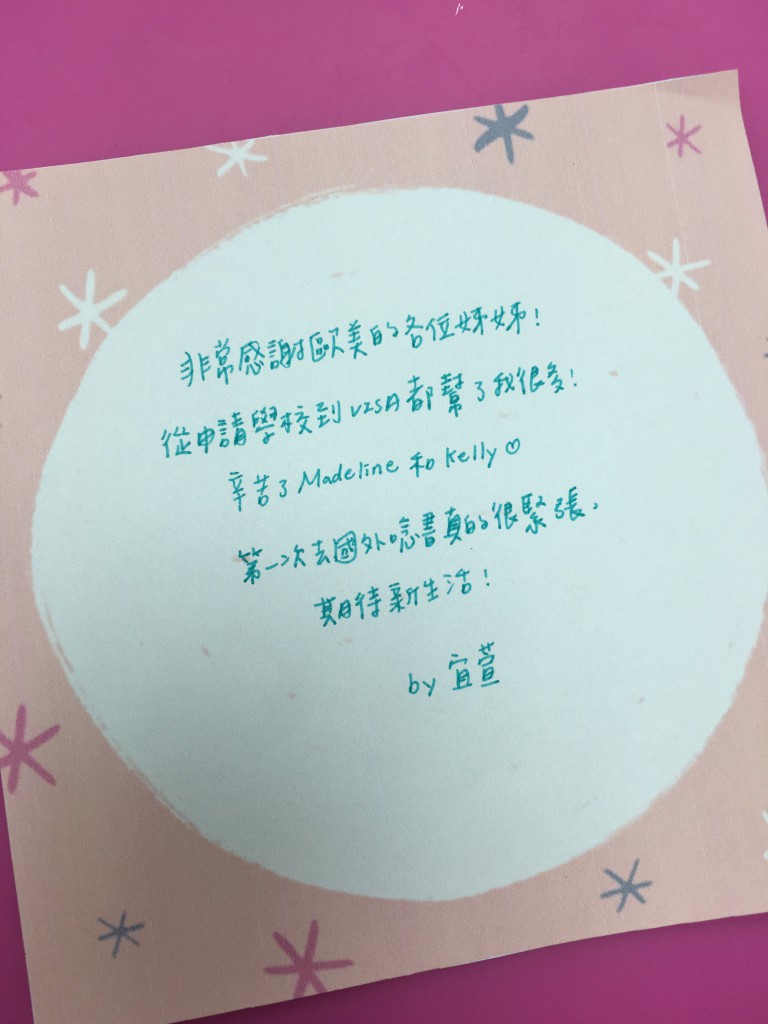 非常感謝歐美的各位姊姊!
從申請學校到VISA都幫了我很多!
辛苦了Madeline 和 Kelly♡
第一次去國外唸書真的很緊張,
期待新生活!
by 宜萱